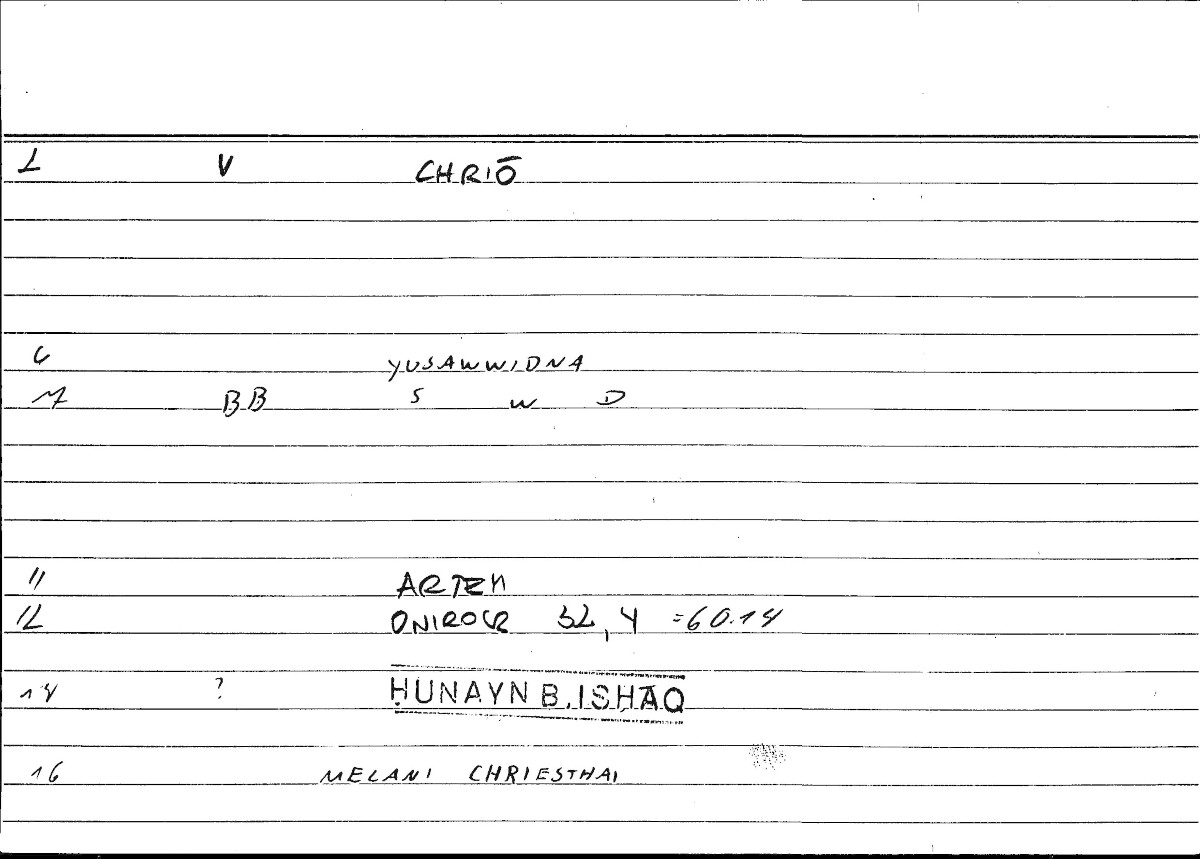 L V CHRIŌ
6 YUSAWWIDNA
7 BB S W D
11 ARTEM
12 ONIROCR 32,4 =60.14
14 ? ḤUNAYN B. ISḤĀQ
16 MELANI CHRIESTHAI